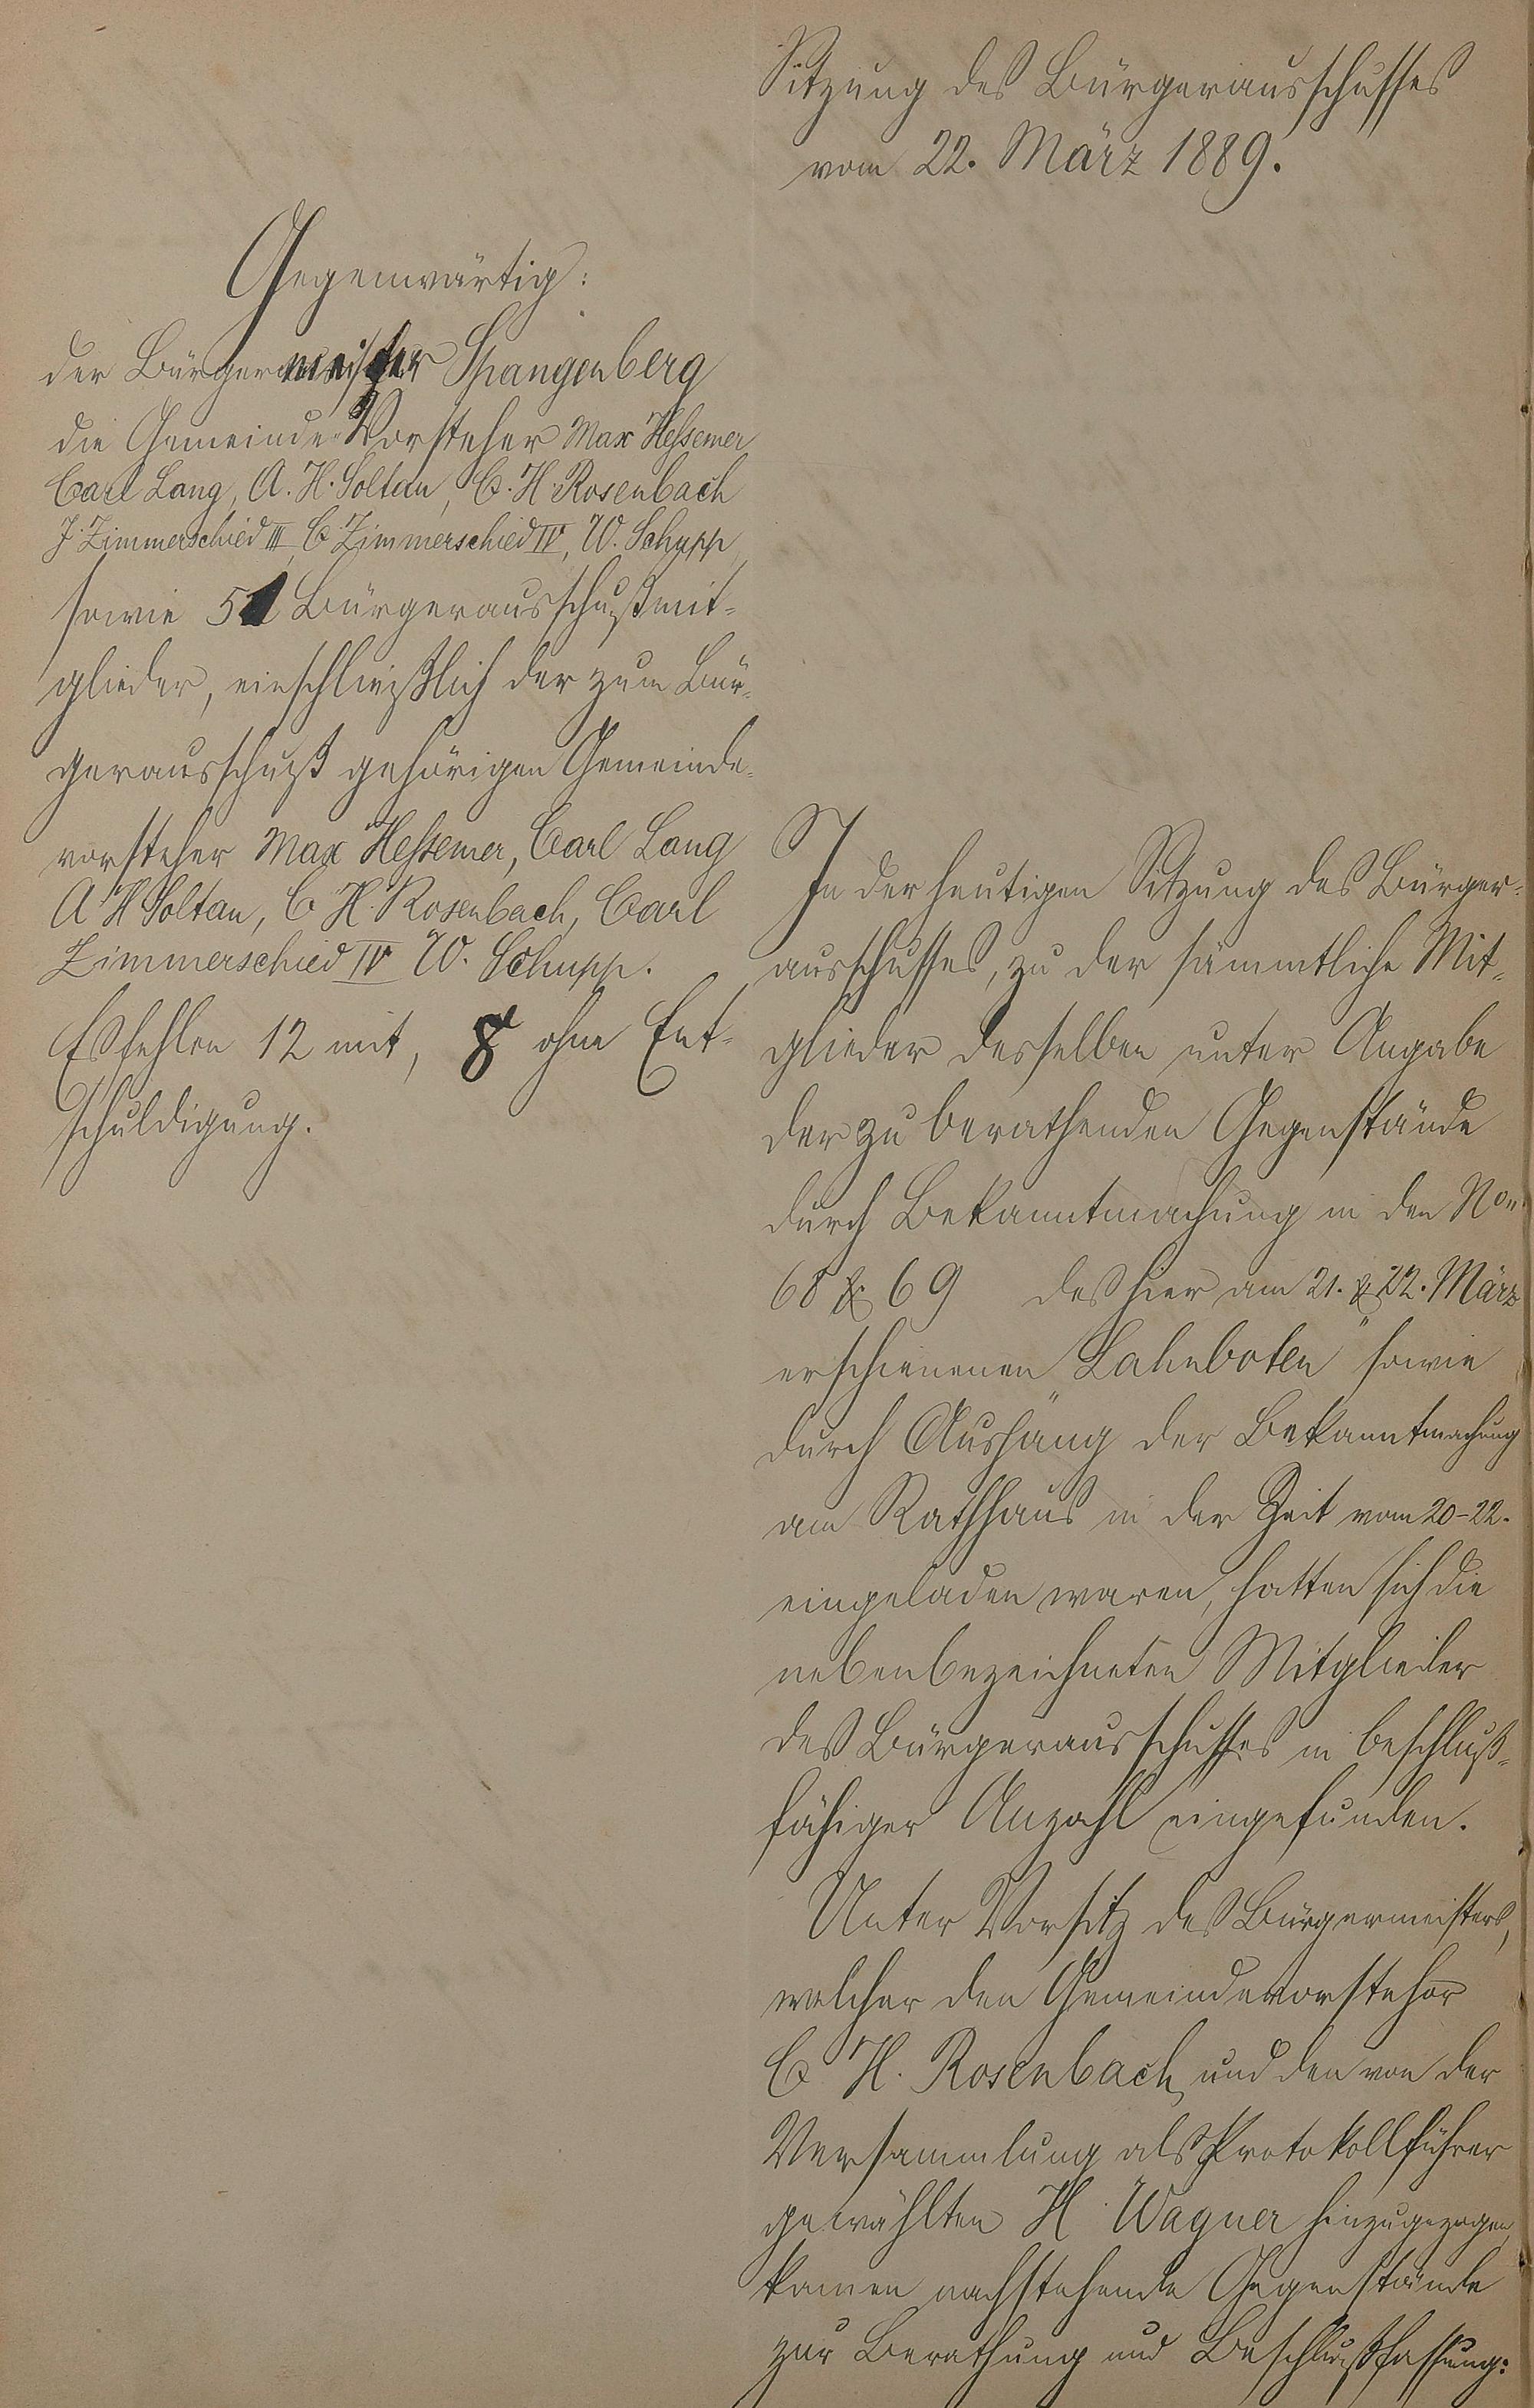 Sitzung des Bürgerausschusses
vom 22. März 1889.
Gegenwärtig:
der Bürgermeister Spangenberg
die Gemeinde-Vorsteher Max Heßemer
Carl Lang, A. H. Soltau, C. H. Rosenbach
J. Zimmerschied III, C. Zimmerschied IV, W. Schupp
sowie 51 Bürgerausschußmit-
glieder, einschließlich der zum Bür-
gerausschuß gehörigen Gemeinde-
vorsteher Max Heßemer, Carl Lang
A H Soltau, C. H. Rosenbach, Carl
Zimmerschied IV W. Schupp.
Es fehlen 12 mit, 8 ohne Ent-
schuldigung.
In der heutigen Sitzung des Bürger-
ausschusses, zu der sämmtliche Mit-
glieder desselben unter Angabe
der zu berathenden Gegenstände
durch Bekanntmachung in den Non
68 & 69 des hier am 21. & 22. März
erschienenen "Lahnboten" sowie
durch Aushang der Bekanntmachung
am Rathhaus in der Zeit vom 20-22.
eingeladen waren, hatten sich die
nebenbezeichneten Mitglieder
des Bürgerausschusses in beschluß-
fähiger Anzahl eingefunden.
Unter Vorsitz des Bürgermeisters,
welcher den Gemeindevorsteher
C. H. Rosenbach und den von der
Versammlung als Protokollführer
gewählten H. Wagner hinzugezogen,
kamen nachstehende Gegenstände
zur Berathung und Beschlußfassung: